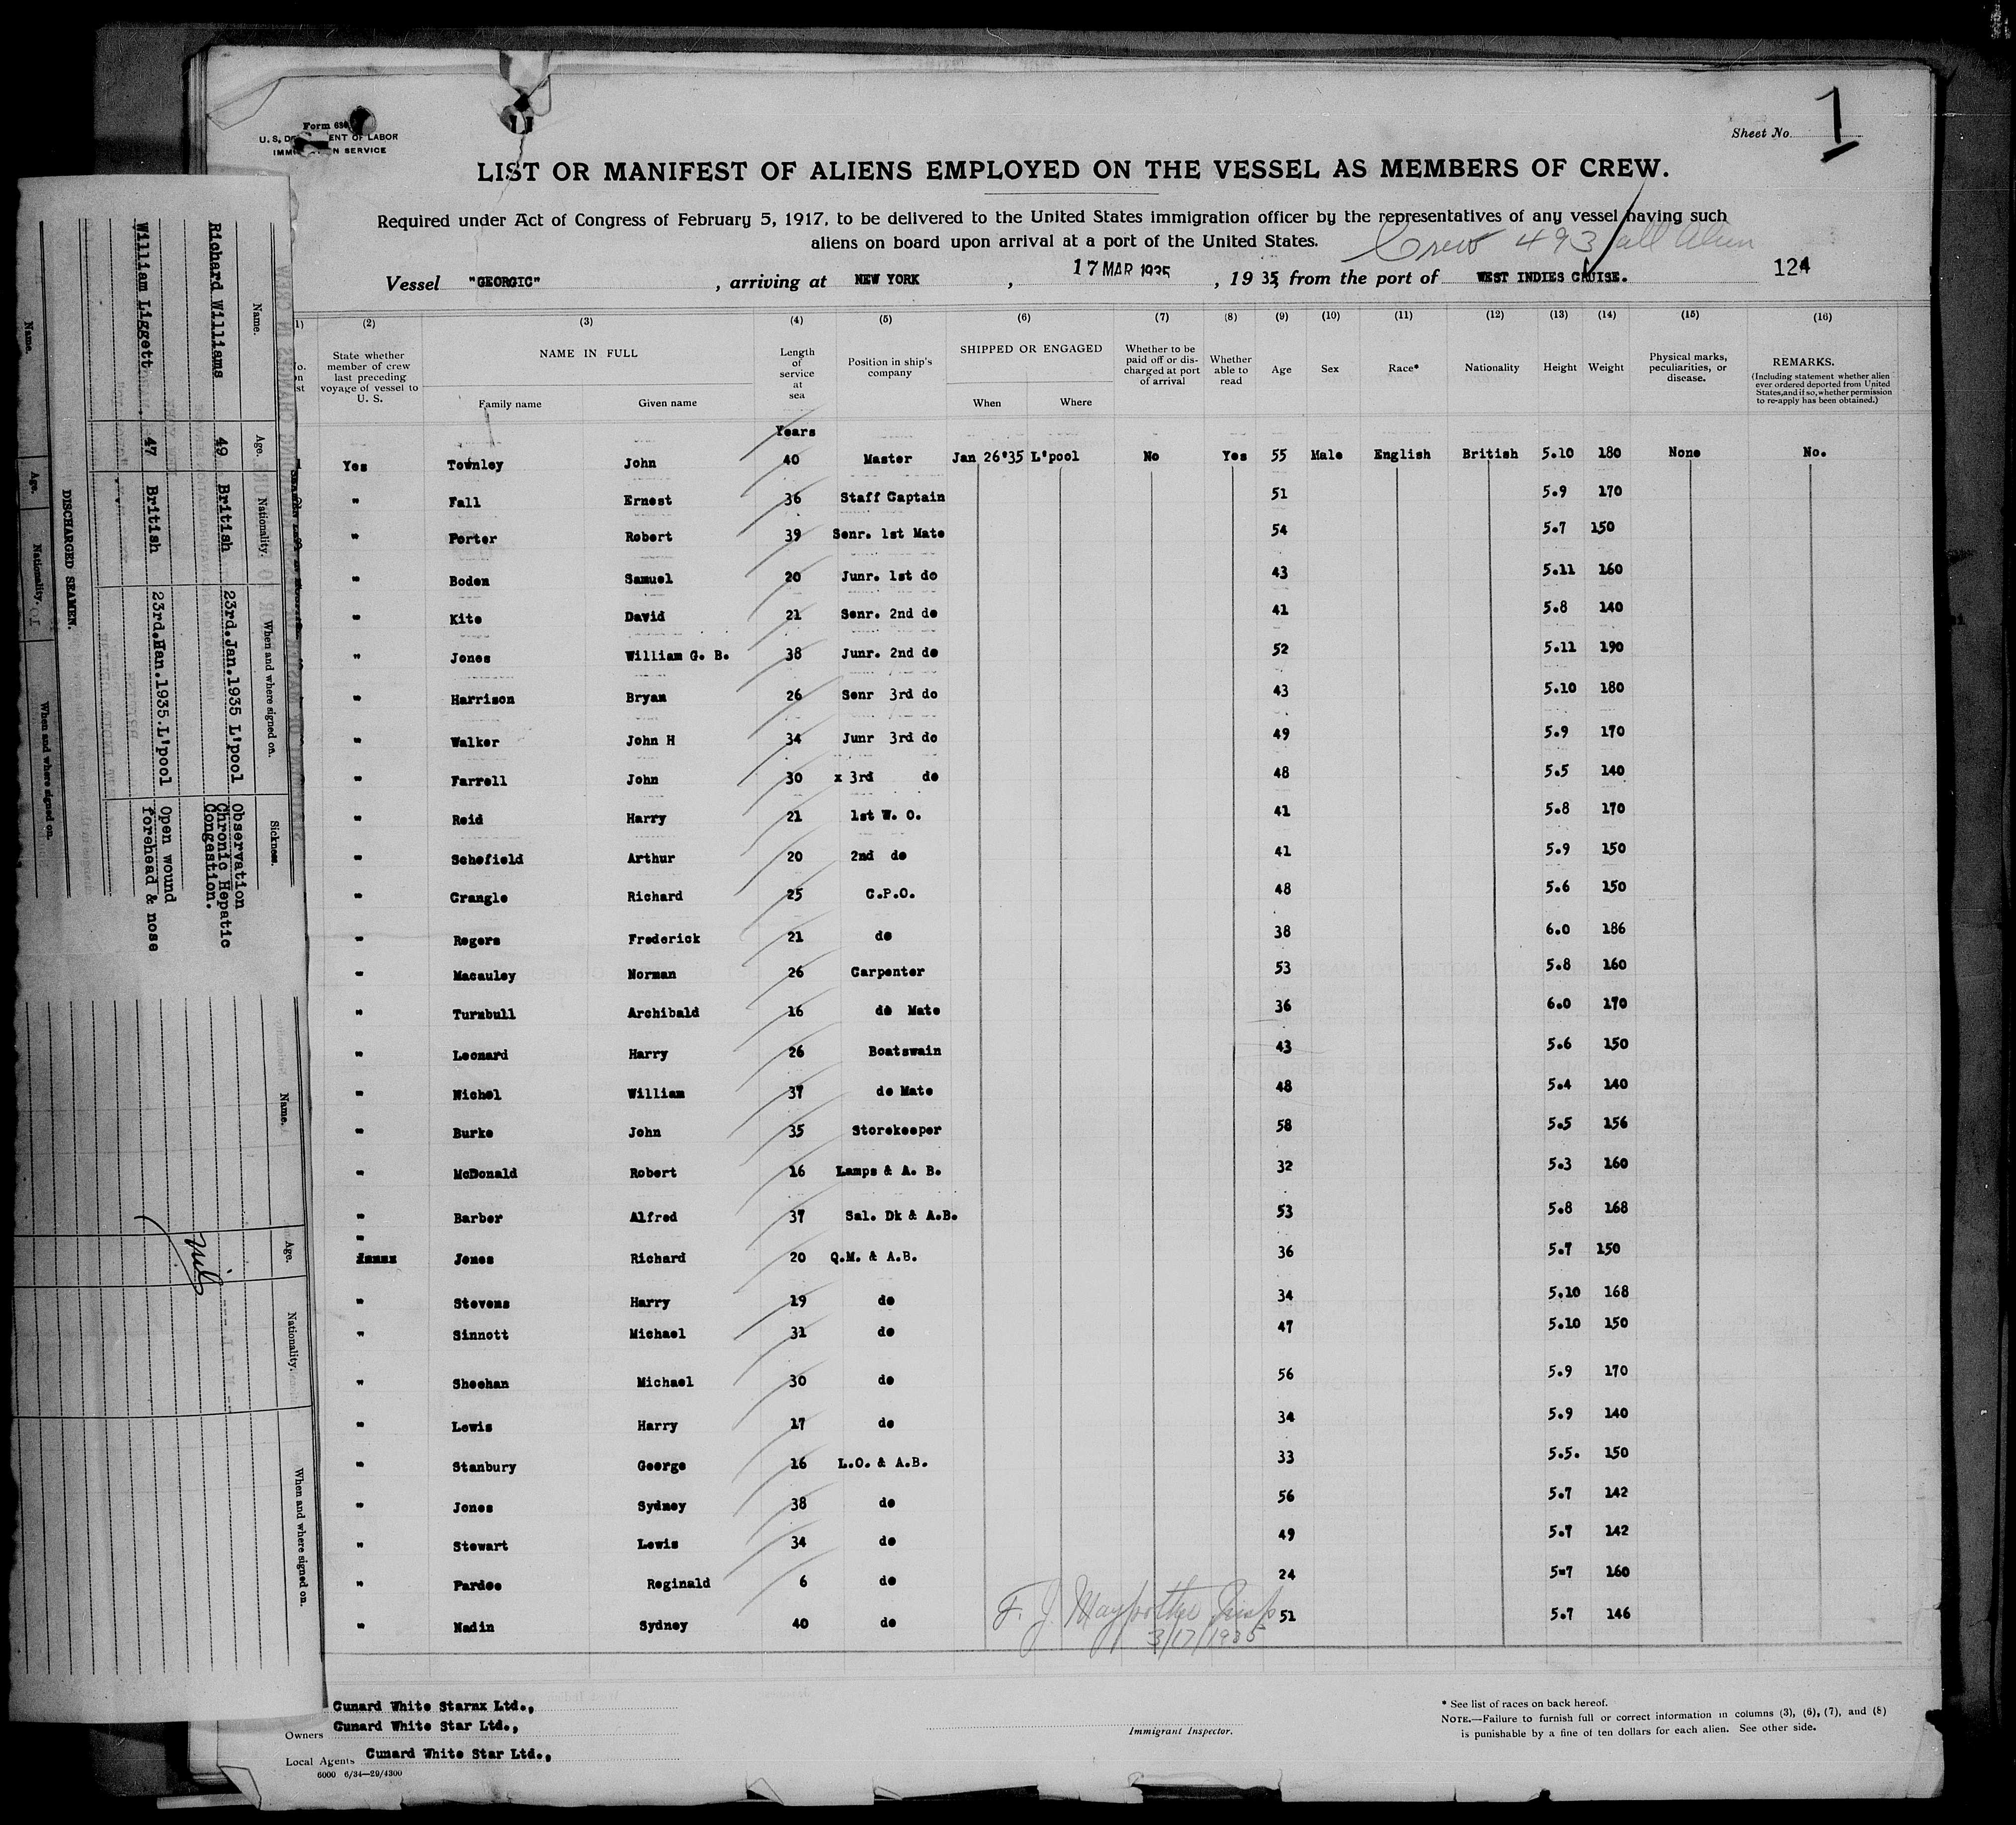 Form 680
U. S. DEPARTMENT OF LABOR
IMMIGRATION SERVICE
Sheet No. 1
LIST OR MANIFEST OF ALIENS EMPLOYED ON THE VESSEL AS MEMBERS OF CREW.
Required under Act of Congress of February 5, 1917, to be delivered to the United States immigration officer by the representatives of any vessel having such
aliens on board upon arrival at a port of the United States.
Crew 493 all Alien
Vessel "GEORGIC", arriving at NEW YORK, 17 MAR 1935, 1935, from the port of WEST INDIES CRUISE. 124
(1) (2) (3) (4) (5) (6) (7) (8) (9) (10) (11) (12) (13) (14) (15) (16)
State whether member of crew last preceding voyage of vessel to U. S.
NAME IN FULL
Family name Given name
Length of service at sea
Position in ship's company
SHIPPED OR ENGAGED
When Where
Whether to be paid off or discharged at port of arrival
Whether able to read
Age Sex Race* Nationality Height Weight
Physical marks, peculiarities, or disease.
REMARKS.
(Including statement whether alien ever ordered deported from United States, and if so, whether permission to re-apply has been obtained.)
Years
Yes Townley John 40 Master Jan 26'35 L'pool No Yes 55 Male English British 5.10 180 None No.
" Fall Ernest 36 Staff Captain 51 5.9 170
" Porter Robert 39 Senr. 1st Mate 54 5.7 150
" Boden Samuel 20 Junr. 1st do 43 5.11 160
" Kite David 21 Senr. 2nd do 41 5.8 140
" Jones William G. B. 38 Junr. 2nd do 52 5.11 190
" Harrison Bryan 26 Senr 3rd do 43 5.10 180
" Walker John H 34 Junr 3rd do 49 5.9 170
" Farrell John 30 x 3rd do 48 5.5 140
" Reid Harry 21 1st W. O. 41 5.8 170
" Schofield Arthur 20 2nd do 41 5.9 150
" Crangle Richard 25 C.P.O. 48 5.6 150
" Rogers Frederick 21 do 38 6.0 186
" Macauley Norman 26 Carpenter 53 5.8 160
" Turnbull Archibald 16 do Mate 36 6.0 170
" Leonard Harry 26 Boatswain 43 5.6 150
" Nichol William 37 do Mate 48 5.4 140
" Burke John 35 Storekeeper 58 5.5 156
" McDonald Robert 16 Lamps & A. B. 32 5.3 160
" Barber Alfred 37 Sal. Dk & A.B. 53 5.8 168
" Jones Richard 20 Q.M. & A.B. 36 5.7 150
" Stevens Harry 19 do 34 5.10 168
" Sinnott Michael 31 do 47 5.10 150
" Sheehan Michael 30 do 56 5.9 170
" Lewis Harry 17 do 34 5.9 140
" Stanbury George 16 L.O. & A.B. 33 5.5. 150
" Jones Sydney 38 do 56 5.7 142
" Stewart Lewis 34 do 49 5.7 142
" Pardoe Reginald 6 do 24 5-7 160
" Nadin Sydney 40 do 51 5.7 146
F. J.
3/17/1935
Cunard White Starnx Ltd.,
Owners Cunard White Star Ltd.,
Local Agents Cunard White Star Ltd.,
6000 6/34—29/4300
Immigrant Inspector.
* See list of races on back hereof.
NOTE.—Failure to furnish full or correct information in columns (3), (6), (7), and (8)
is punishable by a fine of ten dollars for each alien. See other side.
Name. Age. Nationality. When and where signed on. Sickness.
Richard Williams 49 British 23rd.Jan.1935 L'pool Observation
Chronic Hepatic
Congastion.
William Liggett 47 British 23rd.Han.1935.L'pool Open wound
forehead & nose
DISCHARGED SEAMEN.
Name. Age. Nationality. When and where signed on.
Name. Age. Nationality. When and where signed on.
nil